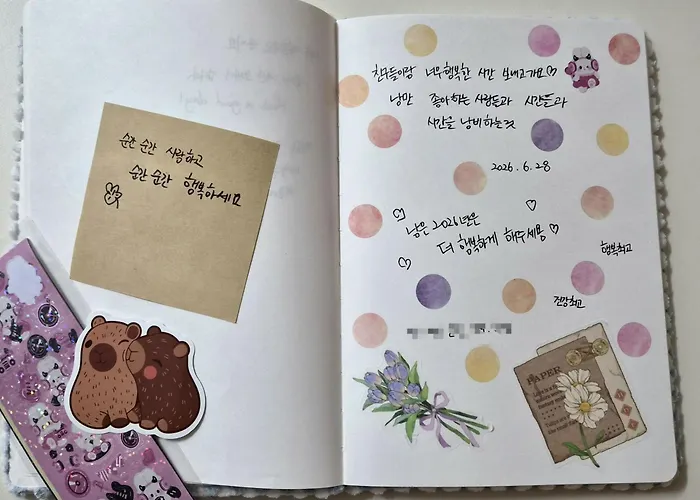 순간 순간 사랑하고
순간 순간 행복하세요
친구들이랑 너무 행복한 시간 보내고가요♡
낭만 좋아하는 사람들과 시간들과
시간을 낭비하는것
2026. 6. 28
남은 2026년은
더 행복하게 해주세용
행복최고
건강최고
PAPER